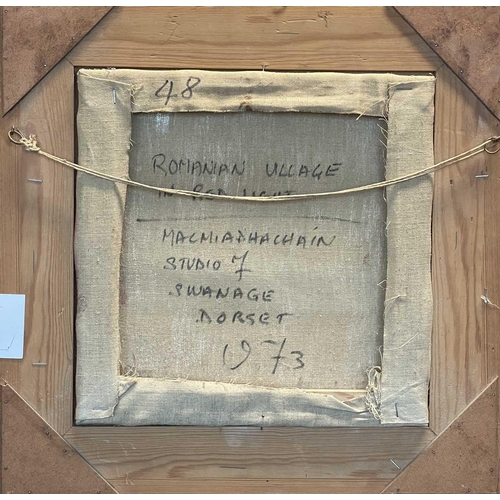 48
ROMANIAN VILLAGE
IN RED LIGHT
MACMIADHACHAIN
STUDIO 7
SWANAGE
DORSET
1973